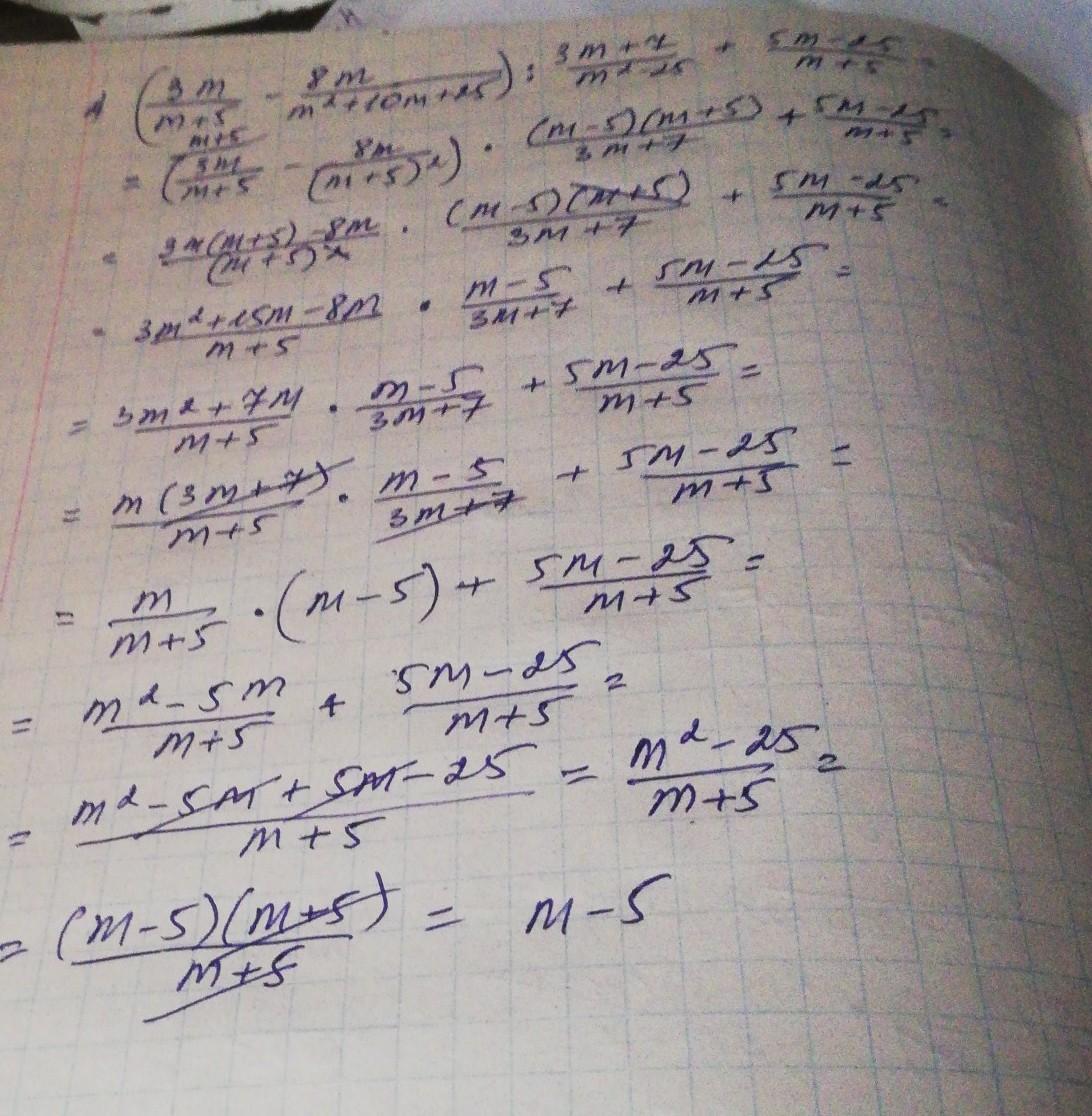 1 (3m/(m+5) - 8m/(m²+10m+25)) : (3m+7)/(m²-25) + (5m-25)/(m+5) =
= (3m/(m+5) - 8m/(m+5)²) · (m-5)(m+5)/(3m+7) + (5m-25)/(m+5) =
= (3m(m+5)-8m)/(m+5)² · (m-5)(m+5)/(3m+7) + (5m-25)/(m+5) =
= (3m²+15m-8m)/(m+5) · (m-5)/(3m+7) + (5m-25)/(m+5) =
= (3m²+7m)/(m+5) · (m-5)/(3m+7) + (5m-25)/(m+5) =
= m(3m+7)/(m+5) · (m-5)/(3m+7) + (5m-25)/(m+5) =
= m/(m+5) · (m-5) + (5m-25)/(m+5) =
= (m²-5m)/(m+5) + (5m-25)/(m+5) =
= (m²-5m+5m-25)/(m+5) = (m²-25)/(m+5) =
= (m-5)(m+5)/(m+5) = m-5